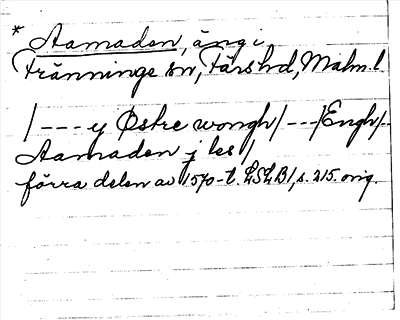 * Aamaden, äng i
Tränninge sn, Färs hd, Malm. l.
/ --- y Østre wongh / --- / Engh / --
Aamaden j les /
förra delen av 1570-t. LSLB 1, s. 215. orig.